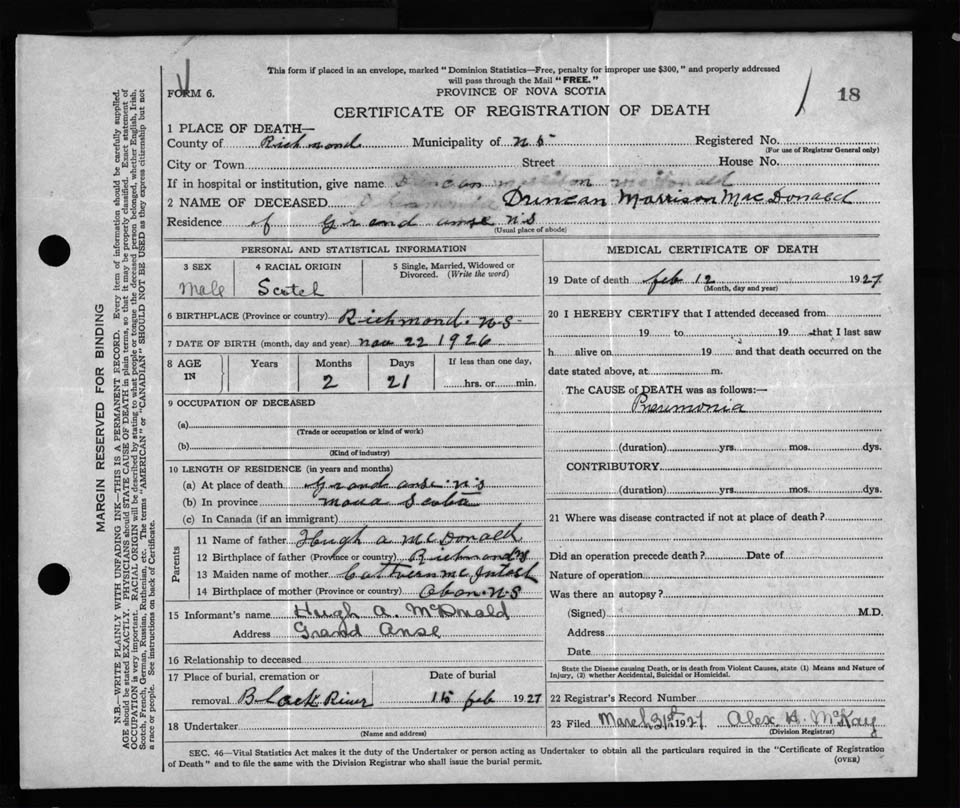 This form if placed in an envelope, marked "Dominion Statistics—Free, penalty for improper use $300," and properly addressed
will pass through the Mail "FREE."
FORM 6.
PROVINCE OF NOVA SCOTIA
18
CERTIFICATE OF REGISTRATION OF DEATH
1 PLACE OF DEATH—
County of Richmond Municipality of N S Registered No.
(For use of Registrar General only)
City or Town Street House No.
If in hospital or institution, give name Duncan McDonald
2 NAME OF DECEASED Duncan Morrison MacDonald
Residence of Grand anse N S
(Usual place of abode)
PERSONAL AND STATISTICAL INFORMATION
3 SEX 4 RACIAL ORIGIN 5 Single, Married, Widowed or Divorced. (Write the word)
Male Scotch
6 BIRTHPLACE (Province or country) Richmond. N.S.
7 DATE OF BIRTH (month, day and year) nov 22 1926
8 AGE IN Years Months Days If less than one day,
2 21 hrs. or min.
9 OCCUPATION OF DECEASED
(a)
(Trade or occupation or kind of work)
(b)
(Kind of industry)
10 LENGTH OF RESIDENCE (in years and months)
(a) At place of death Grand anse N S
(b) In province nova Scotia
(c) In Canada (if an immigrant)
Parents
11 Name of father Hugh a McDonald
12 Birthplace of father (Province or country) Richmond NS
13 Maiden name of mother McIntosh
14 Birthplace of mother (Province or country) N.S
15 Informant's name Hugh A. McDonald
Address Grand Anse
16 Relationship to deceased
17 Place of burial, cremation or Date of burial
removal Black River 15 feb 1927
18 Undertaker
(Name and address)
MEDICAL CERTIFICATE OF DEATH
19 Date of death feb 12 1927
(Month, day and year)
20 I HEREBY CERTIFY that I attended deceased from
19 to 19 that I last saw
h alive on 19 and that death occurred on the
date stated above, at m.
The CAUSE of DEATH was as follows:—
Pneumonia
(duration) yrs. mos. dys.
CONTRIBUTORY
(duration) yrs. mos. dys.
21 Where was disease contracted if not at place of death?
Did an operation precede death? Date of
Nature of operation
Was there an autopsy?
(Signed) M.D.
Address
Date
State the Disease causing Death, or in death from Violent Causes, state (1) Means and Nature of
Injury, (2) whether Accidental, Suicidal or Homicidal.
22 Registrar's Record Number
23 Filed March 31st 1927 Alex H. McKay
(Division Registrar)
SEC. 46—Vital Statistics Act makes it the duty of the Undertaker or person acting as Undertaker to obtain all the particulars required in the "Certificate of Registration
of Death" and to file the same with the Division Registrar who shall issue the burial permit.
(OVER)
MARGIN RESERVED FOR BINDING
N.B.—WRITE PLAINLY WITH UNFADING INK—THIS IS A PERMANENT RECORD. Every item of information should be carefully supplied.
AGE should be stated EXACTLY. PHYSICIANS should STATE CAUSE OF DEATH in plain terms, so that it may be properly classified. Exact statement of
OCCUPATION is very important. RACIAL ORIGIN will be described by stating to what people or tongue the deceased person belonged, whether English, Irish,
Scotch, French, German, Russian, Ruthenian, etc. The terms "AMERICAN" or "CANADIAN" SHOULD NOT BE USED as they express citizenship but not
a race or people. See instructions on back of Certificate.